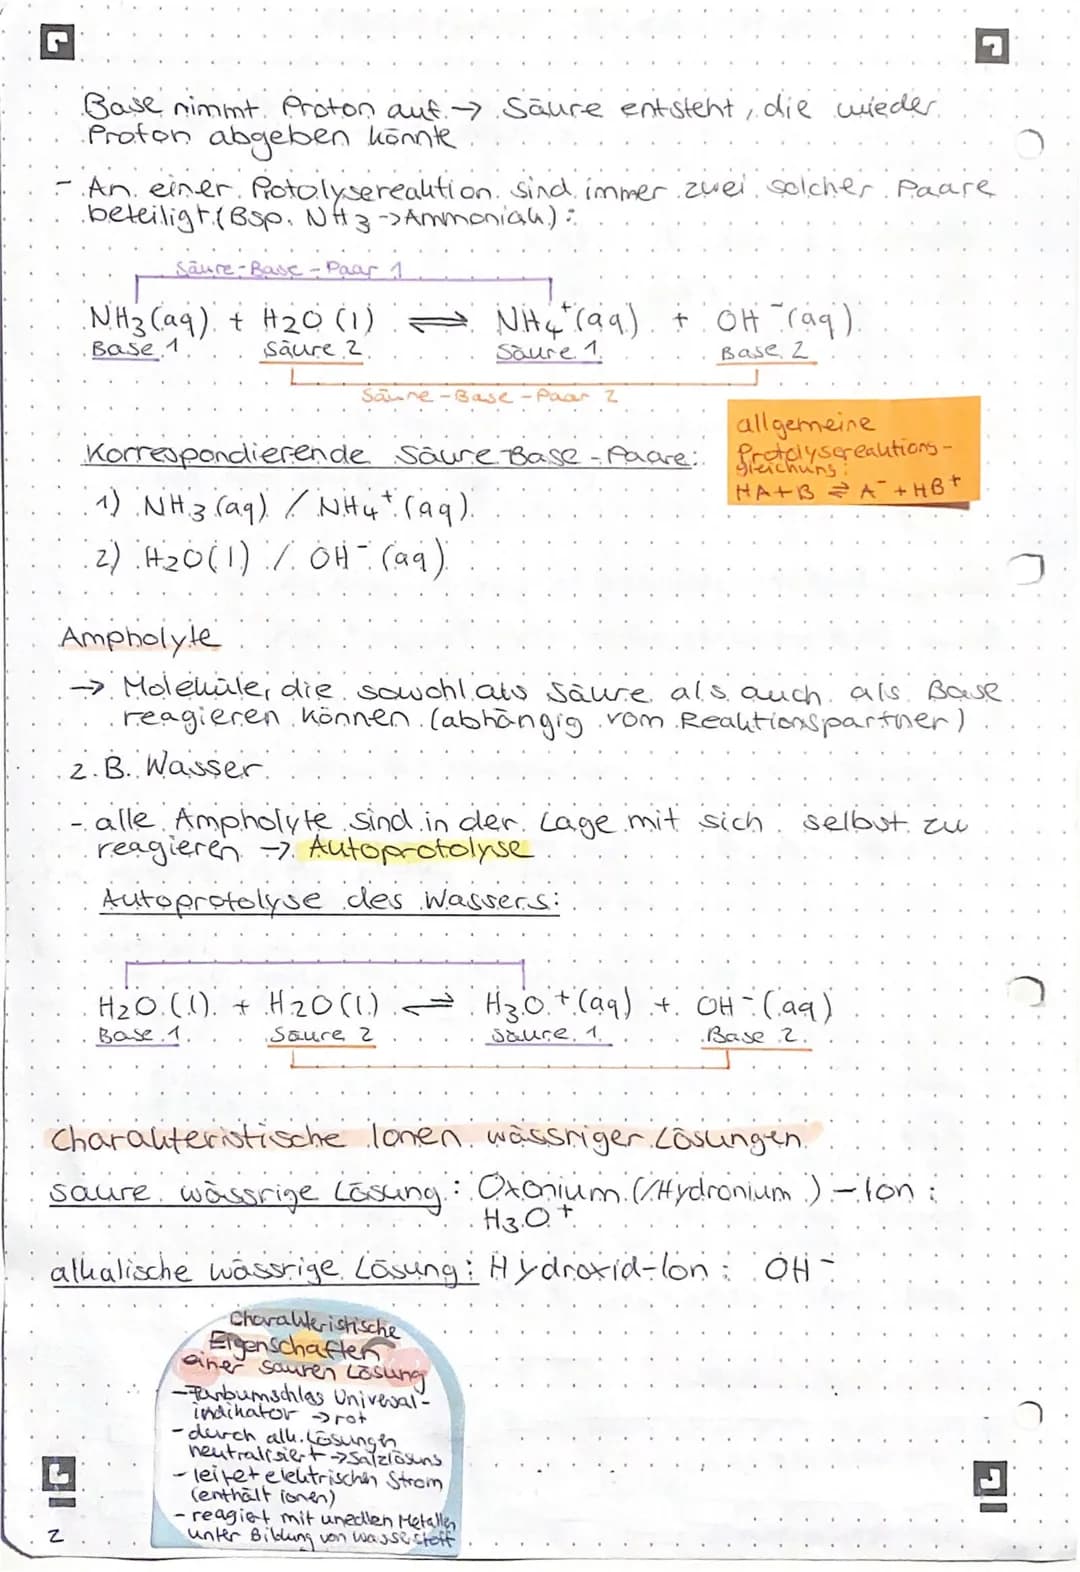 Base nimmt Proton auf → Säure entsteht, die wieder
Proton abgeben könnte
- An einer Potolysereaktion sind immer zwei solcher Paare
beteiligt (Bsp. NH3 -> Ammoniak):
Säure-Base-Paar 1
NH3(aq) + H2O (l) ⇌ NH4+(aq) + OH-(aq)
Base 1 Säure 2 Säure 1 Base 2
Säure-Base-Paar 2
allgemeine
Protolysereaktions-
gleichung:
HA+B ⇌ A- + HB+
Korrespondierende Säure-Base-Paare:
1) NH3(aq) / NH4+(aq)
2) H2O(l) / OH-(aq)
Ampholyte
→ Moleküle, die sowohl als Säure als auch als Base
reagieren können (abhängig vom Reaktionspartner)
z.B. Wasser
- alle Ampholyte sind in der Lage mit sich selbst zu
reagieren → Autoprotolyse
Autoprotolyse des Wassers:
H2O (l) + H2O(l) ⇌ H3O+(aq) + OH-(aq)
Base 1 Säure 2 Säure 1 Base 2
Charakteristische Ionen wässriger Lösungen
saure wässrige Lösung: Oxonium (/Hydronium)-Ion:
H3O+
alkalische wässrige Lösung: Hydroxid-Ion: OH-
Charakteristische
Eigenschaften
einer sauren Lösung
- Farbumschlag Universal-
indikator → rot
- durch alk. Lösungen
neutralisiert → Salzlösung
- leitet elektrischen Strom
(enthält Ionen)
- reagiert mit unedlen Metallen
unter Bildung von Wasserstoff
2